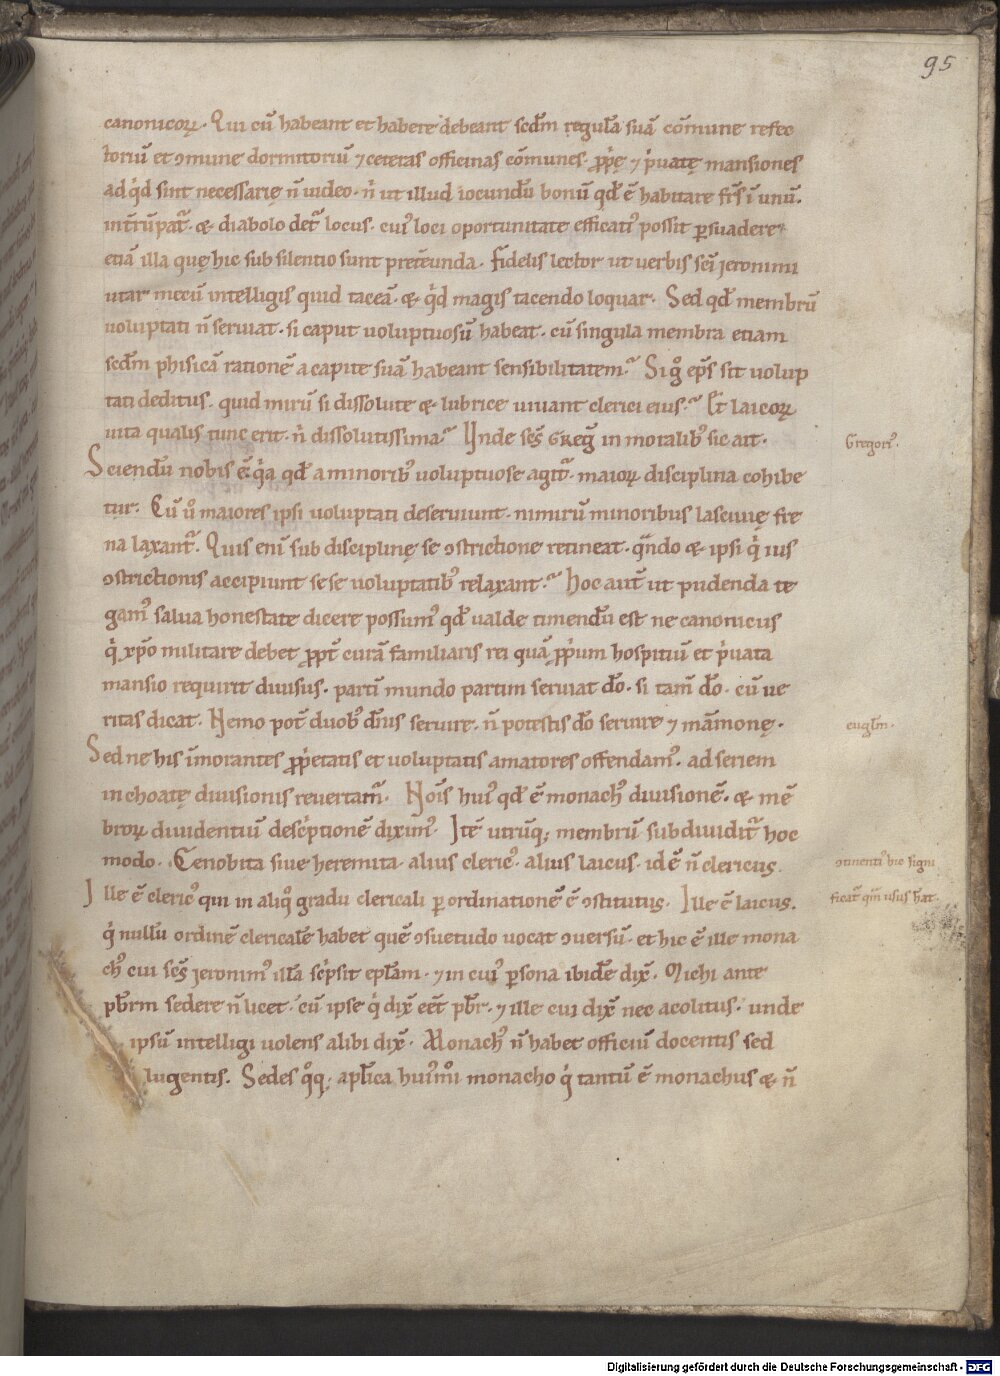 95
canonicoꝝ. Qui cū habeant et habere debeant scđm regulā suā cōmune refec
toriū et ꝯmune dormitoriū ⁊ ceteras officinas cōmunes. ꝓp̄ę ⁊ p͛uatę mansiones
ad qͥd sint necessarię n̄ uideo. nͥ ut illud iocundū bonū qđ ē habitare fr̄s ī unū.
int̄rūpat᷑. & diabolo det᷑ locus. cuiꝰ loci oportunitate efficatiꝰ possit ꝑsuadere
etiā illa quę hic sub silentio sunt pretereunda. fidelis lector ut uerbis sc̄i ieronimi
utar mecū intelligis quid taceā. & qͥd magis tacendo loquar. Sed qđ membrū
uoluptati n̄ seruiat. si caput uoluptuosū habeat. cū singula membra etiam
scđm phisicā rationē a capite suā habeant sensibilitatem. Si gͦ ep̄s sit uolup
tati deditus. quid mirū si dissolute & lubrice uiuant clerici eius. Et laicoꝝ
uita qualis tunc erit. nͥ dissolutissima. Unde sc̄s Greḡ in moralibꝰ sic ait.
Gregoriꝰ.
Sciendū nobis ē qͥa qđ a minoribꝰ uoluptuose agit᷑. maioꝝ disciplina cohibe
tur. Cū uͦ maiores ipsi uoluptati deseruiunt. nimirū minoribus lasciuię fre
na laxant᷑. Quis eni sub disciplinę se ꝯstrictione retineat. qn̄do & ipsi qͥ ius
ꝯstrictionis accipiunt sese uoluptatibꝰ relaxant. Hoc aut̄ ut pudenda te
gamꝰ salua honestate dicere possumꝰ qđ ualde timendū est ne canonicus
qͥ xp̄o militare debet ꝓpt̄ curā familiaris rei quā ꝓp̄um hospitiū et p͛uata
mansio requirit diuisus. partī mundo partim seruiat dō. si tam̄ dō. cū ue
ritas dicat. Nemo pot̄ duobꝰ dn̄is seruire. n̄ potestis dō seruire ⁊ māmonę.
euglm̄.
Sed ne his īmorantes ꝓp̄etatis et uoluptatis amatores offendamꝰ. ad seriem
inchoatę diuisionis reuertam᷑. Nōis huiꝰ qđ ē monachꝰ diuisionē. & mē
broꝝ diuidentiū desc͛ptionē diximꝰ. Itē utrūq; membrū subdiuidit᷑ hoc
modo. Cenobita siue heremita. alius clericꝰ. alius laicus. id ē n̄ clericus.
ꝯuenti hic signi
Ille ē clericꝰ qui in aliqͦ gradu clericali ꝑ ordinationē ē ꝯstitutus. Ille ē laicus.
ficat᷑ qm̄ usus hāt.
qͥ nullū ordinē clericalē habet quē ꝯsuetudo uocat ꝯuersū. et hic ē ille mona
chꝰ cui sc̄s ieronimꝰ illā sc͛psit epłam. ⁊ in cuiꝰ ꝑsona ibidē dix̄. Michi ante
pb̄rm sedere n̄ licet. cū ipse qͥ dix̄ eēt pb̄r. ⁊ ille cui dix̄ nec acolitus. unde
ipsū intelligi uolens alibi dix̄. Monachꝰ n̄ habet officiū docentis sed
lugentis. Sedes qͦq; aplīca huiꝰmōi monacho qͥ tantū ē monachus & n̄
Digitalisierung gefördert durch die Deutsche Forschungsgemeinschaft - DFG